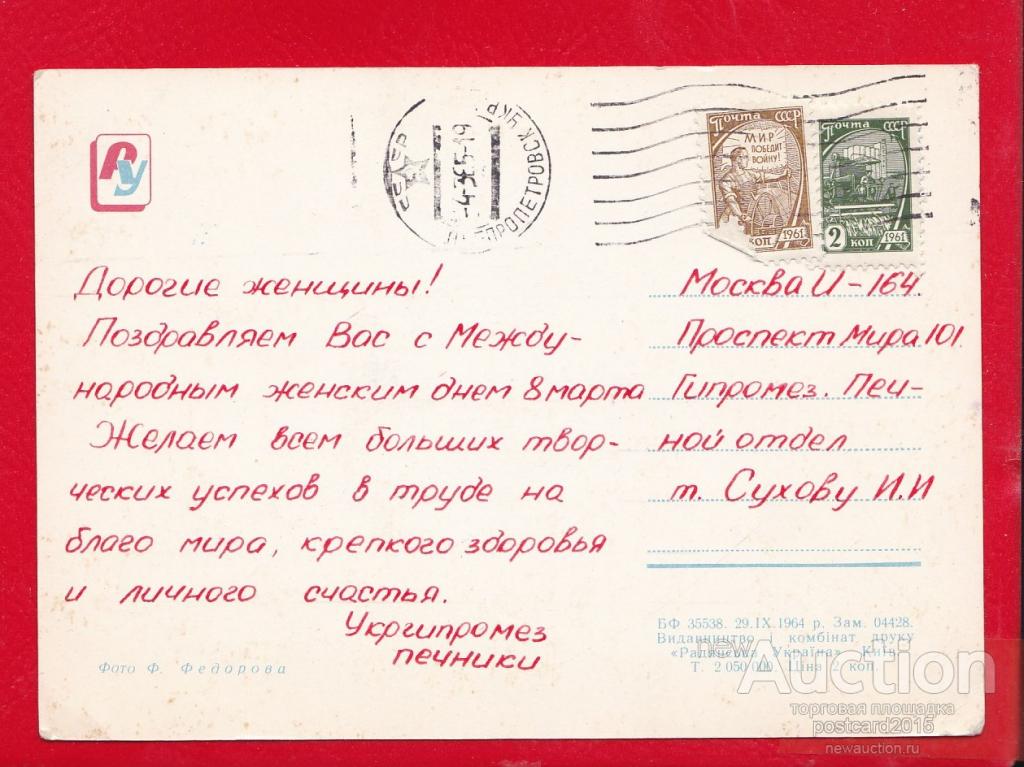 РУ
СССР
ДНЕПРОПЕТРОВСК УКР
Почта СССР
МИР
ПОБЕДИТ
ВОЙНУ!
КОП 1961
Почта СССР
2 КОП 1961
Дорогие женщины!
Поздравляем Вас с Между-
народным женским днем 8 марта
Желаем всем больших твор-
ческих успехов в труде на
благо мира, крепкого здоровья
и личного счастья.
Укргипромез
печники
Москва И-164
Проспект Мира 101
Гипромез. Печ-
ной отдел
т. Сухову И.И
Фото Ф. Федорова
БФ 35538. 29.IX.1964 р. Зам. 04428.
Видавництво і комбінат друку
«Радянська Україна» Київ-
Т. 2 050 000. Ціна 2 коп.
newAuction
торговая площадка
postcard2015
newauction.ru